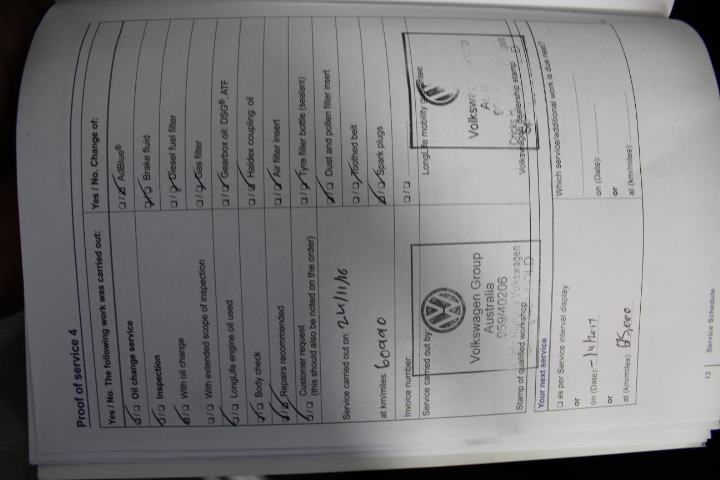 Proof of service 4
Yes / No. The following work was carried out:
Oil change service
Inspection
With oil change
With extended scope of inspection
LongLife engine oil used
Body check
Repairs recommended
Customer request
(this should also be noted on the order)
Service carried out on: 24/11/16
at km/miles: 60990
Invoice number:
Service carried out by:
Volkswagen Group
Australia
959/40206
Stamp of qualified workshop
Yes / No. Change of:
AdBlue®
Brake fluid
Diesel fuel filter
Gas filter
Gearbox oil: DSG®, ATF
Haldex coupling: oil
Air filter insert
Tyre filler bottle (sealant)
Dust and pollen filter insert
Toothed belt
Spark plugs
LongLife mobility
Volkswagen
Your next service
as per Service interval display
or
on (Date):
or
at (km/miles): 75,000
Which service/additional work is due next?
on (Date):
or
at (km/miles):
12 | Service Schedule